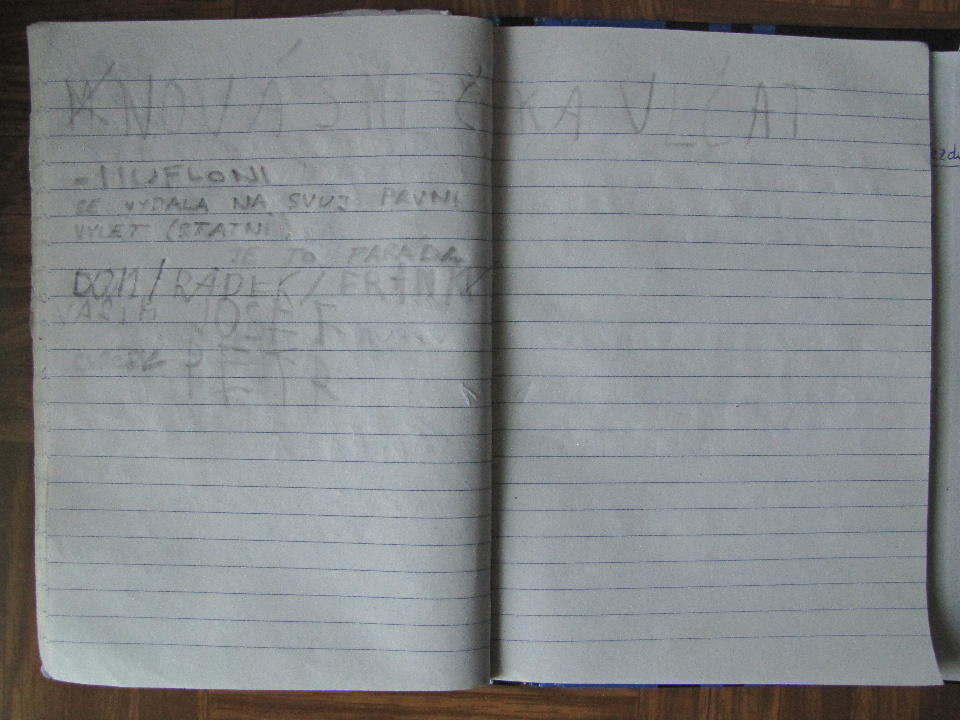 NOVÁ SMEČKA VLČAT
- MUFLONI
SE VYDALA NA SVUJ PRVNI
VYLET (STATNI)
JE TO PARADA
DOM / RADEK / FRANK
VAŠEK JOSEF
PETR